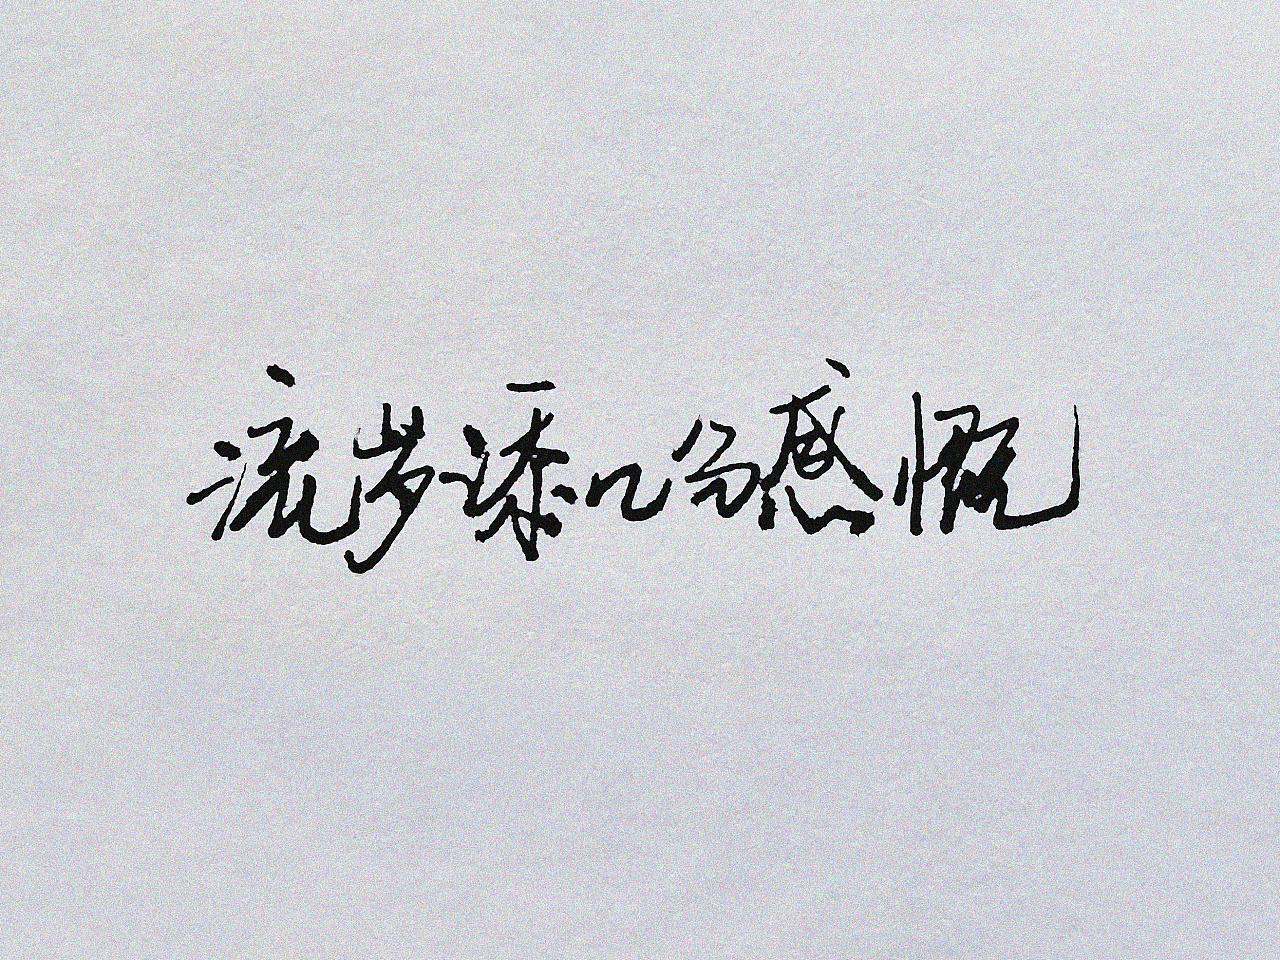 流岁添几分感慨